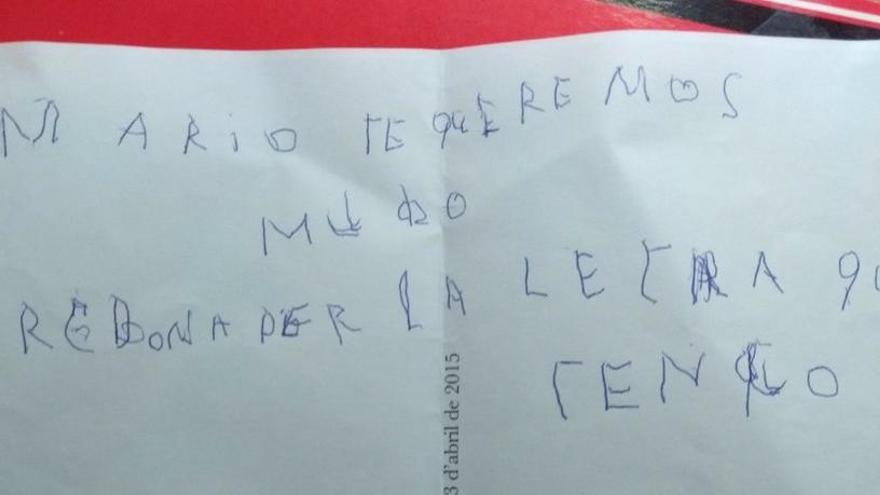 MARIO TE QUEREMOS
MUSHO
REDONA PER LA LETRA QU
TENGO
3 d'abril de 2015